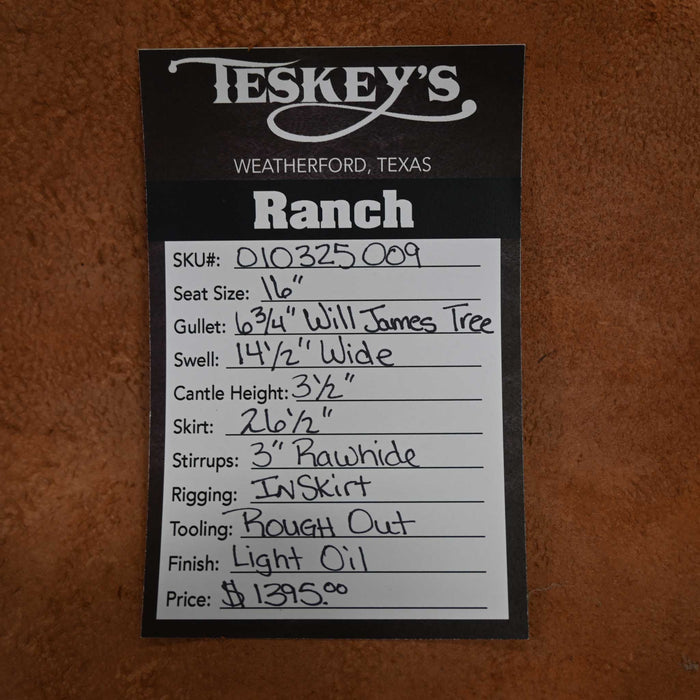 TESKEY'S
WEATHERFORD, TEXAS
Ranch
SKU#: 010325009
Seat Size: 16"
Gullet: 6 3/4" Will James Tree
Swell: 14 1/2" Wide
Cantle Height: 3 1/2"
Skirt: 26 1/2"
Stirrups: 3" Rawhide
Rigging: InSkirt
Tooling: Rough Out
Finish: Light Oil
Price: $1395.00